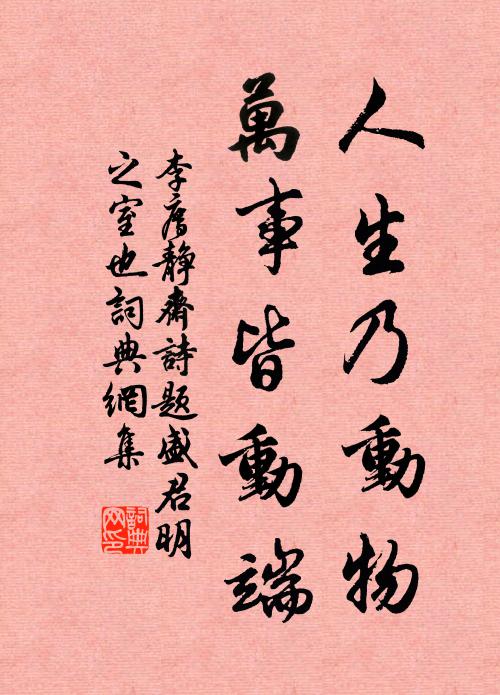 人生乃動物
萬事皆動端
李廌靜齋詩題盛君明
之室也詞典網集
詞典
网印